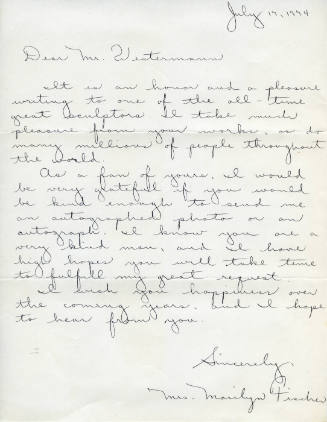 July 19, 1974
Dear Mr. Westermann
It is an honor and a pleasure
writing to one of the all-time
great sculptors. I take much
pleasure from your works, as do
many millions of people throughout
the world.
As a fan of yours, I would
be very grateful if you would
be kind enough to send me
an autographed photo or an
autograph. I know you are a
very kind man, and I have
high hopes you will take time
to fulfill my great request.
I wish you happiness over
the coming years, and I hope
to hear from you.
Sincerely,
Mrs. Marilyn Fischer